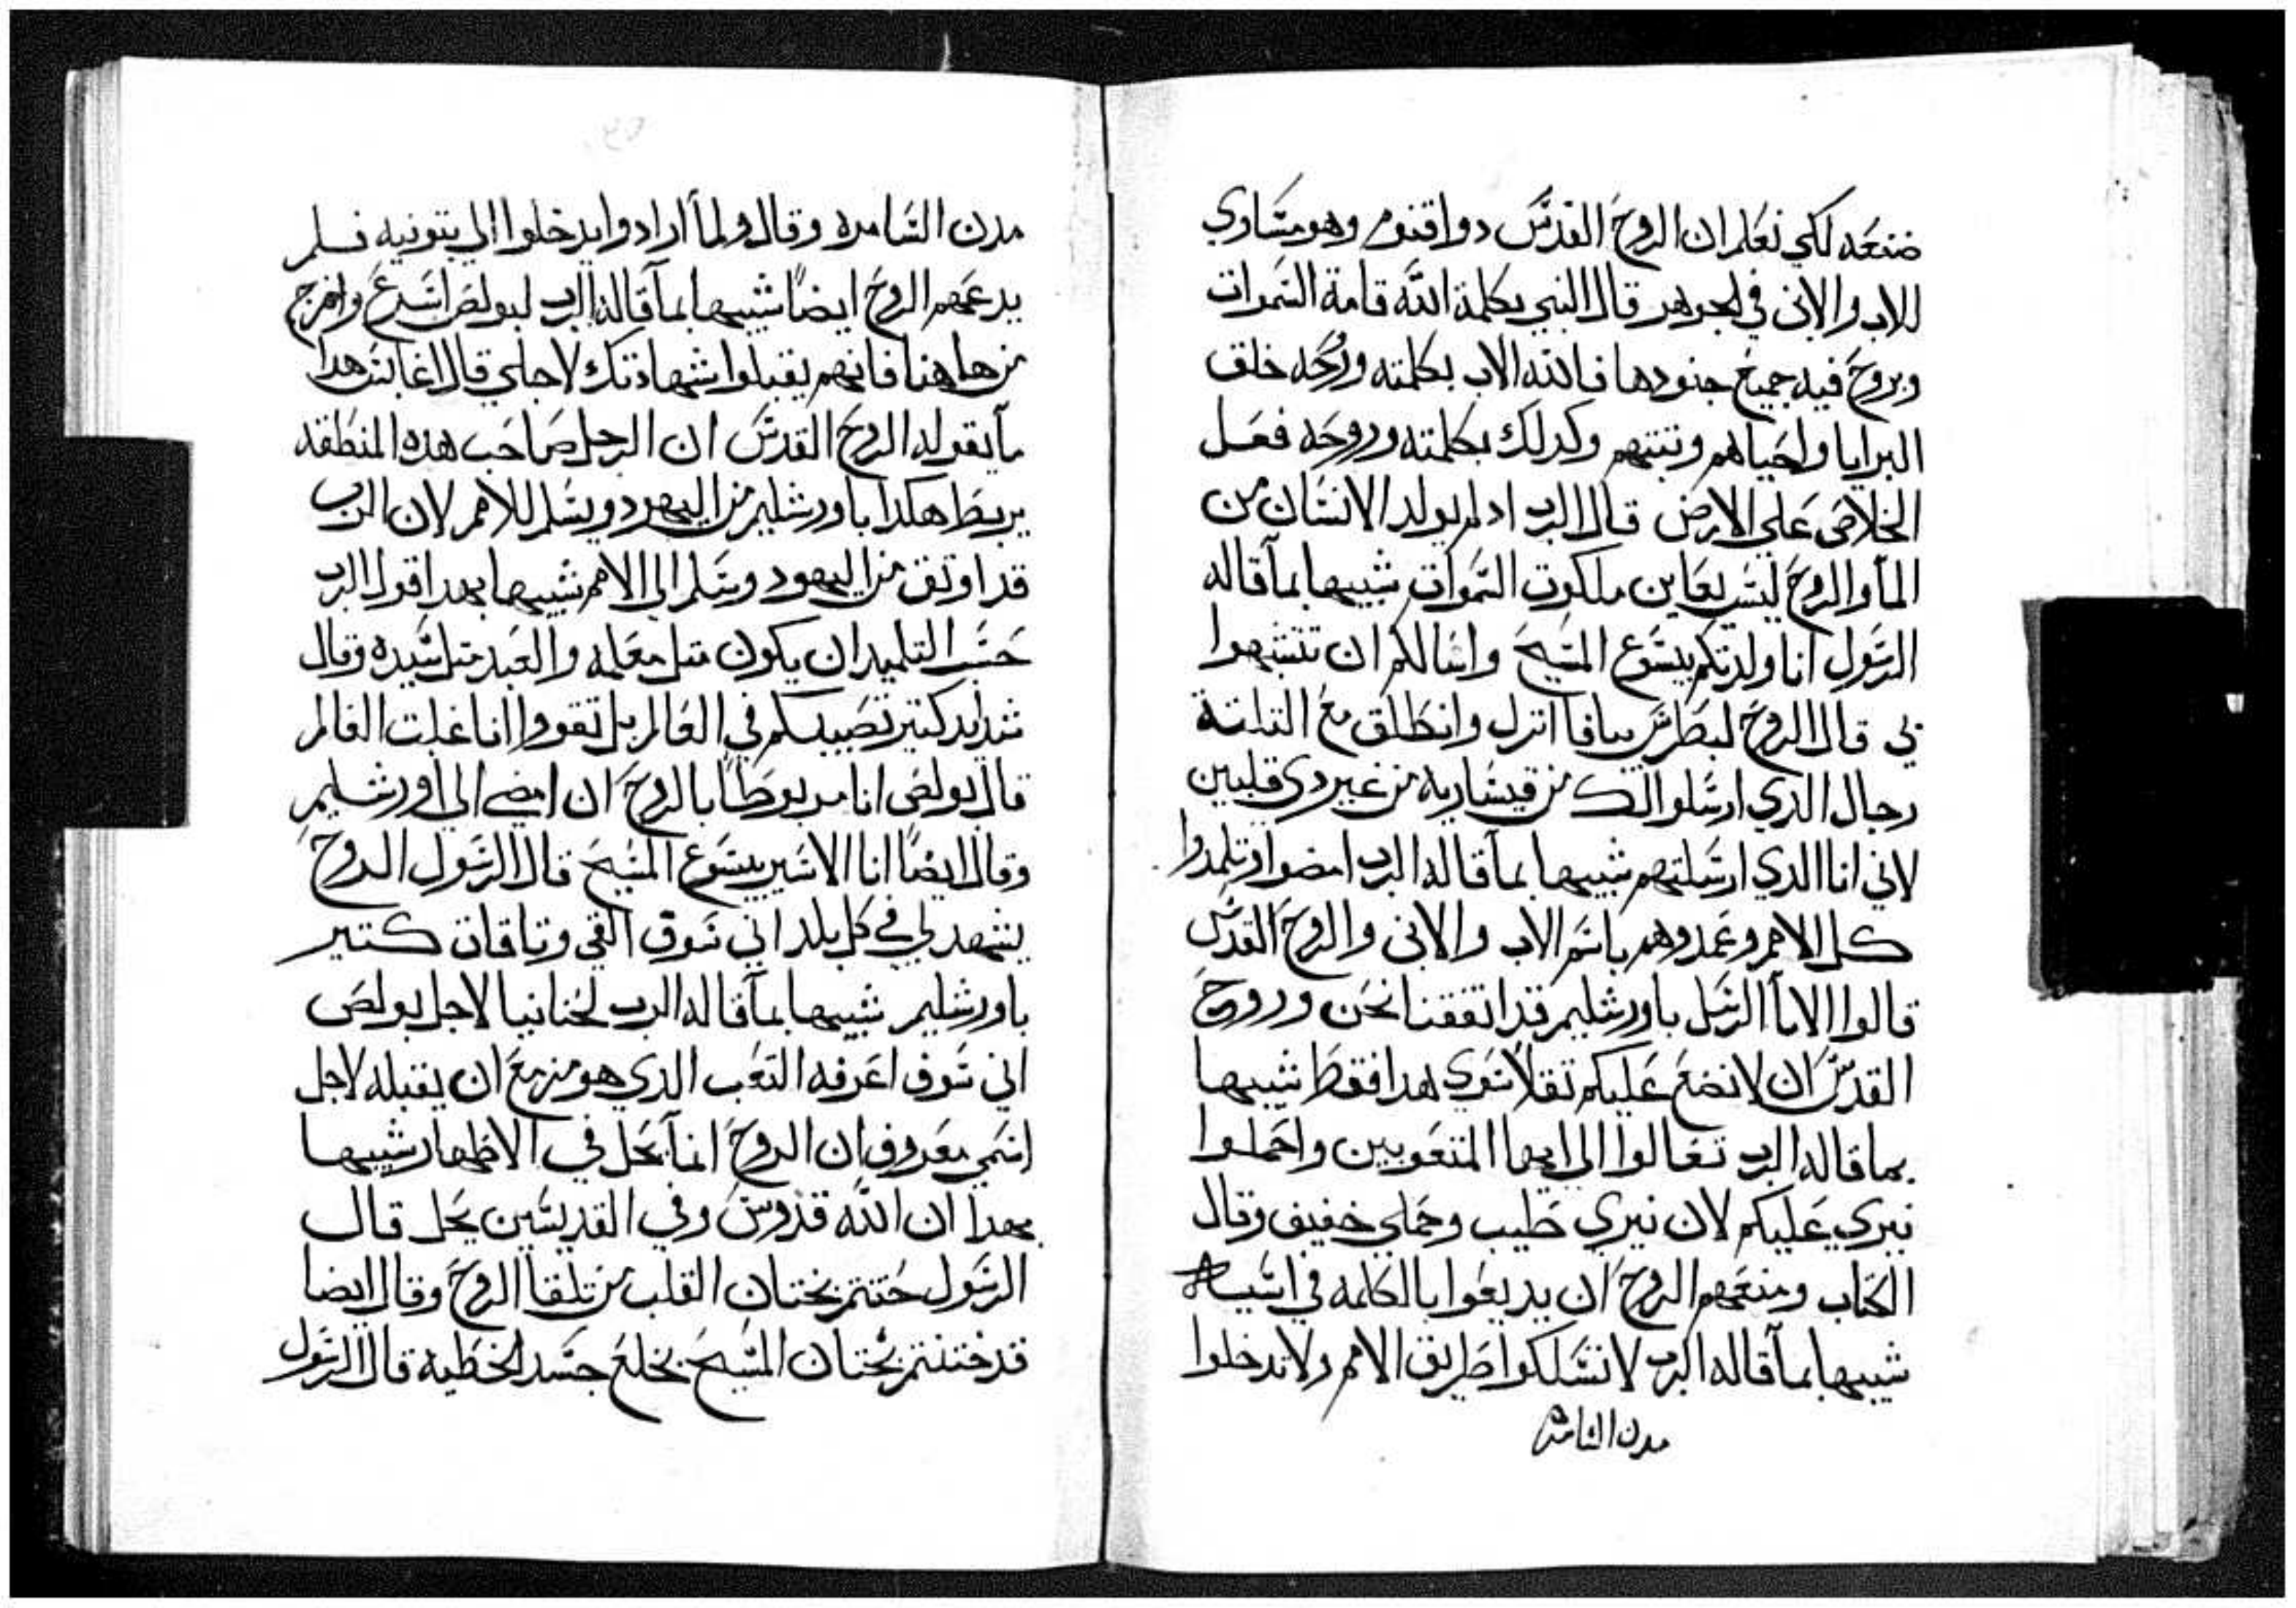 ضنعه لكي نعلم ان الروح القدس دو اقنوم وهو مساوي
للاب والابن في الجوهر قال النبي بكلمة الله قامة السموات
وبروح فيه جميع جنودها فالله الاب بكلمته وروحه خلق
البرايا واحياهم وتبتهم وكدلك بكلمته وروحه فعل
الخلاص على الارض قال الرب ادا لم يولد الانسان من
الماء والروح ليس يعاين ملكوت السموات شبيها بما قاله
الرسول انا ولدتكم بيسوع المسيح واسالكم ان تتشبهوا
بي قال الروح لبطرس بيافا انزل وانطلق مع التلتة
رجال الدي ارسلوا اليك من قيسارية من غير دي قلبين
لاني انا الدي ارسلتهم شبيها بما قاله الرب امضوا وتلمدوا
كل الامم وعمدوهم باسم الاب والابن والروح القدس
قالوا الاباء الرسل باورشليم قد اتفقنا نحن وروح
القدس ان لا نضع عليكم تقلا سوى هدا فقط شبيها
بما قاله الرب تعالوا الي ايها المتعوبين واحملوا
نيري عليكم لان نيري طيب وحملي خفيف وقال
الكتاب ومنعهم الروح ان يديعوا بالكلمه في اسيا
شبيها بما قاله الرب لا تسلكوا طريق الامم ولا تدخلوا
مدن السامره
مدن السامره وقال ولما ارادوا يدخلوا الي بتونيه فلم
يدعهم الروح ايضا شبيها بما قاله الرب لبولص اسرع واخرج
من هاهنا فانهم يقبلوا شهادتك لاجلي قال اغابس هدا
ما يقوله الروح القدس ان الرجل صاحب هذه المنطقه
يربط هكدا باورشليم من اليهود ويسلم للامم لان الرب
قد اوتق من اليهود وسلم الى الامم شبيها بهدا قول الرب
حسب التلميد ان يكون متل معلمه والعبد متل سيده وقال
شدايد كتير تصيبكم في العالم بل تقووا انا غلبت العالم
قال بولص انا مربوطا بالروح ان امضي الى اورشليم
وقال ايضا انا الاسير بيسوع المسيح قال الرسول الروح
يشهد لي في كل بلد اني سوف القي وتاقات كتير
باورشليم شبيها بما قاله الرب لحنانيا لاجل بولص
اني سوف اعرفه التعب الدي هو مزمع ان يقبله لاجل
اسمي معروف ان الروح انما يحل في الاطهار شبيها
بهدا ان الله قدوس وفي القديسين يحل قال
الرسول ختنتم بختان القلب من تلقا الروح وقال ايضا
قد ختنتم بختان المسيح بخلع جسد الخطية قال الرسول